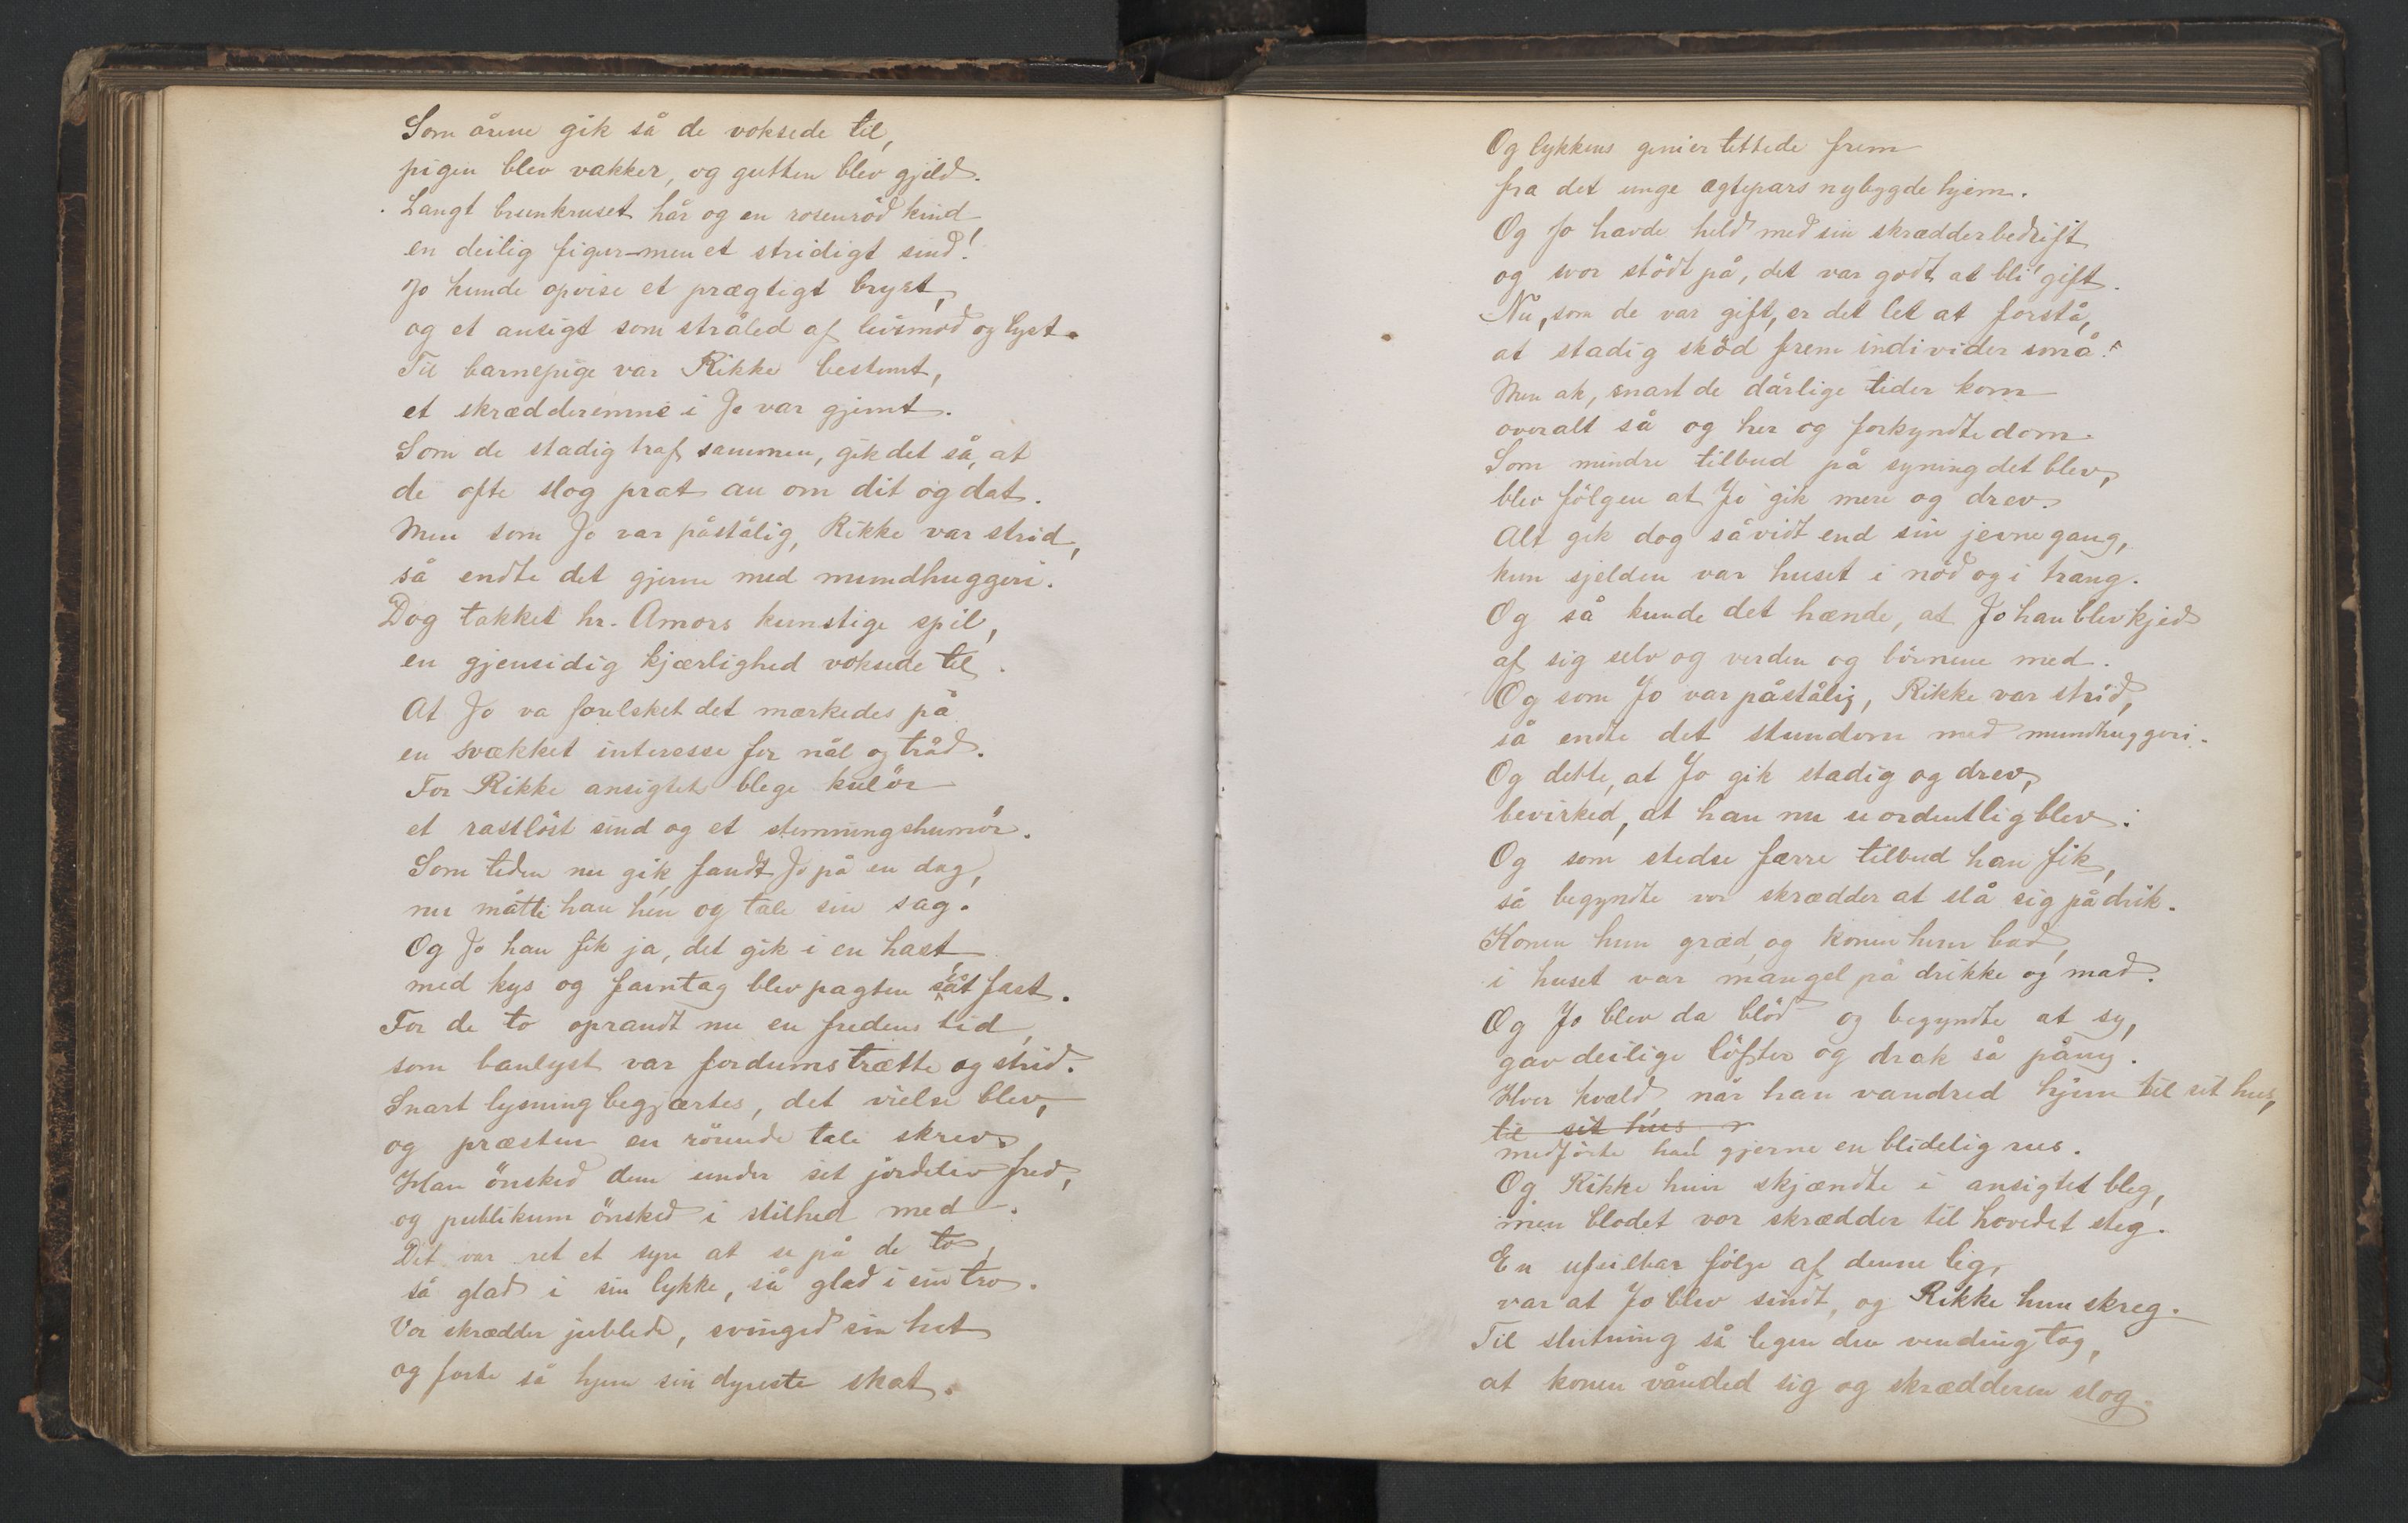 Som årene gik så de voksede til,
pigen blev vakker, og gutten blev gjild.
Langt brunkruset hår og en rosenröd kind
en deilig figur - men et stridigt sind!
Jo kunde opvise et prægtigt bryst,
og et ansigt som stråled af livsmod og lyst.
Til barnepige var Rikke bestemt,
et skrædderemne i Jo var gjemt.
Som de stadig traf sammen, gik det så, at
de ofte slog prat an om dit og dat.
Men som Jo var påstålig, Rikke var strid,
så endte det gjerne med mundhuggeri.
Dog takket hr. Amors kunstige spil,
en gjensidig kjærlighed voksede til.
At Jo va forelsket det mærkedes på
en svækket interesse for nål og tråd.
For Rikke ansigtets blege kulör
et rastlöst sind og et stemningshumör.
Som tiden nu gik, fandt Jo på en dag,
nu måtte han hen og tale sin sag.
Og Jo han fik ja, det gik i en hast,
med kys og favntag blev pagten sat fast.
For de to oprandt nu en fredens tid,
som banlyst var fordums trætte og strid.
Snart lysning begjærtes, det vielse blev,
og præsten en rörende tale skrev.
Han önsked dem under sit jordeliv fred,
og publikum önsked i stilhed med.
Det var ret et syn at se på de to,
så glad i sin lykke, så glad i sin tro.
Vor skrædder jublede, svinged sin hat
og förte så hjem sin dyreste skat.
Og lykkens genier tittede frem
fra det unge ægtepars nybygde hjem.
Og Jo havde held med sin skrædderbedrift
og svor stödt på, det var godt at bli' gift.
Nu, som de var gift, er det let at forstå,
at stadig sköd frem individer små.
Men ak, snart de dårlige tider kom
overalt så og her og forkyndte dom.
Som mindre tilbud på syning det blev,
blev fölgen at Jo gik mere og drev.
Alt gik dog såvidt end sin jevne gang,
kun sjelden var huset i nöd og i trang.
Og så kunde det hænde, at Jo han blev kjed
af sig selv og verden og börnene med.
Og som Jo var påstålig, Rikke var strid,
så endte det stundom med mundhuggeri.
Og dette, at Jo gik stadig og drev,
bevirked, at han nu uordentlig blev.
Og som stedse færre tilbud han fik,
så begyndte vor skrædder at slå sig på drik.
Konen hun græd, og konen hun bad,
i huset var mangel på drikke og mad.
Og Jo blev da blöd og begyndte at sy,
gav deilige löfter og drak så påny.
Hver kvæld når han vandred hjem til sit hus,
til sit hus
medförte han gjerne en blidelig rus.
Og Rikke hun skjændte i ansigtet bleg,
men blodet vor skrædder til hovedet steg.
En ufeilbar fölge af denne leg,
var at Jo blev sindt, og Rikke hun skreg.
Til slutning så legen den vending tog,
at konen vånded sig og skrædderen slog.